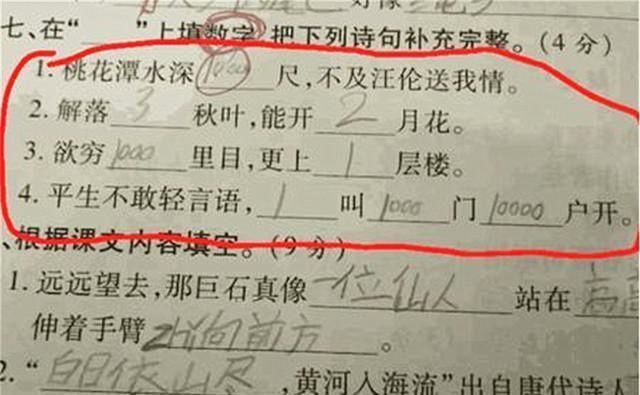 好像
七、在“____”上填数字,把下列诗句补充完整。(4分)
1. 桃花潭水深1000尺,不及汪伦送我情。
2. 解落3秋叶,能开2月花。
3. 欲穷1000里目,更上1层楼。
4. 平生不敢轻言语,1叫1000门10000户开。
、根据课文内容填空。(9分)
1. 远远望去,那巨石真像一位仙人站在高高
伸着手臂指向前方。
2. “白日依山尽,黄河入海流”出自唐代诗人